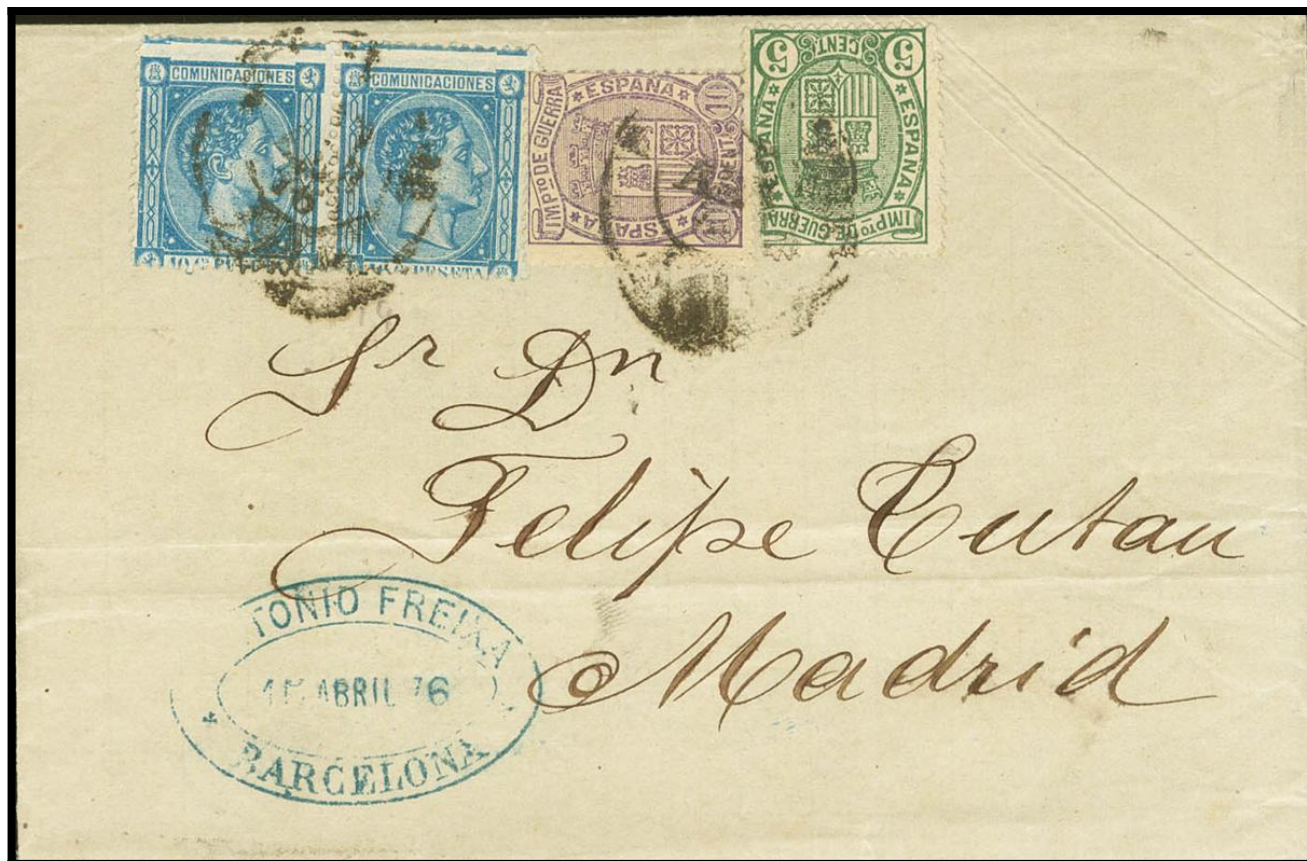 COMUNICACIONES COMUNICACIONES
10 Cs PESETA
ESPAÑA
IMPTO DE GUERRA
10 CENT. 10
ESPAÑA
5 CENT. 5
ESPAÑA ESPAÑA
IMPTO DE GUERRA
Sr Dn
Felipe Cutau
Madrid
TONIO FREIXA
ABRIL 76
BARCELONA